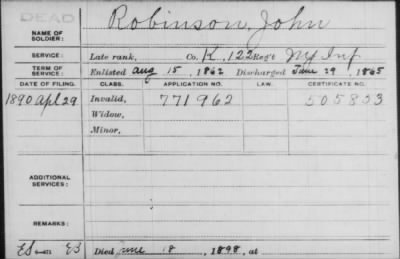 DEAD
NAME OF SOLDIER: Robinson, John
SERVICE: Late rank, Co. K, 122 Reg't Inf
TERM OF SERVICE: Enlisted Aug 15, 1862 Discharged June 29, 1865
DATE OF FILING. CLASS. APPLICATION NO. LAW. CERTIFICATE NO.
1890 Apl 29 Invalid, 771962 505833
Widow,
Minor,
ADDITIONAL SERVICES:
REMARKS:
Died June 18, 1898, at